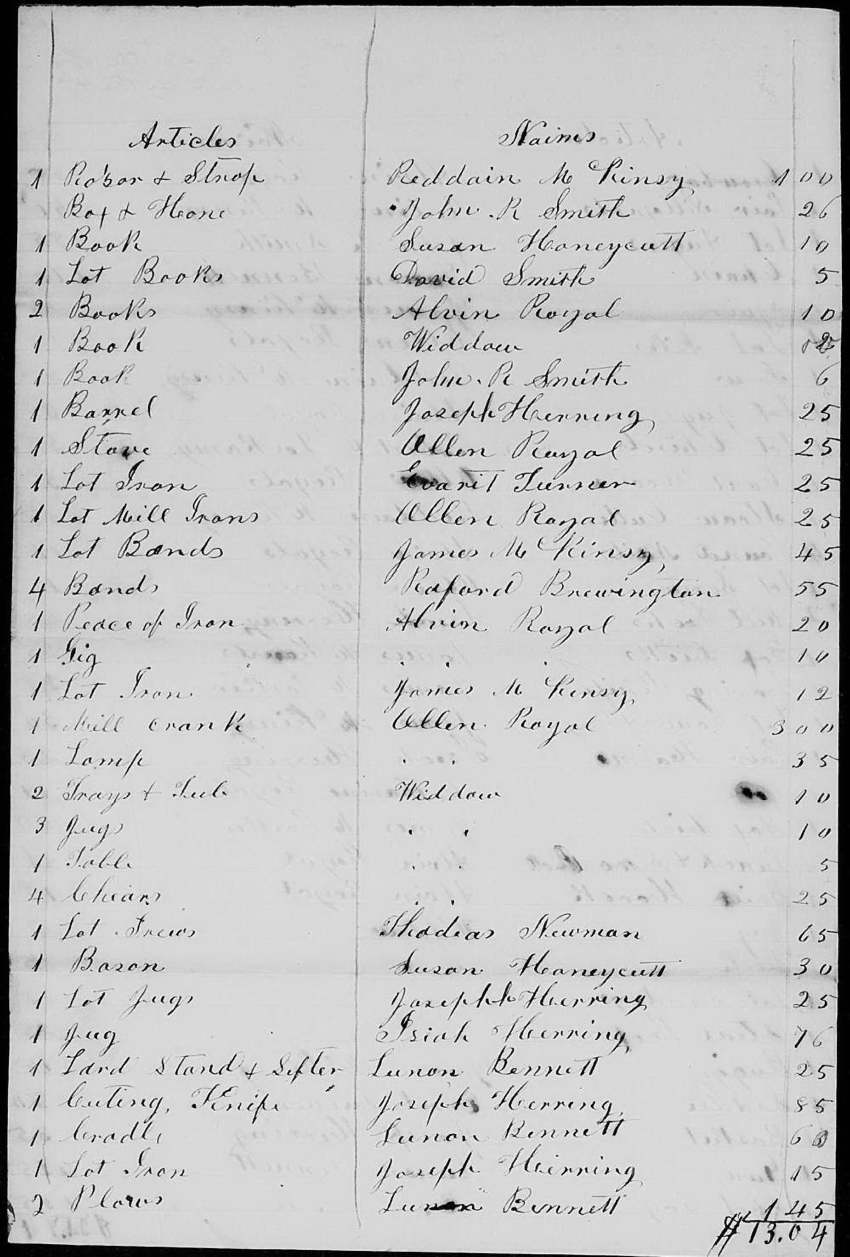 Articles Naims
1 Rosor & Strop Reddain Mc Kinsy 1 00
Box & Hone John R Smith 26
1 Book Susan Honeycutt 10
1 Lot Books David Smith 5
2 Books Alvin Royal 10
1 Book Widdow
1 Book John R Smith 6
1 Barrel Joseph Herring 25
1 Stove Ollen Royal 25
1 Lot Iron Evarit Turner 25
1 Lot Mill Irons Ollen Royal 25
1 Lot Bands James Mc Kinsy 45
4 Bands Raford Brewington 55
1 Peace of Iron Alvin Royal 20
1 Gig " " " 10
1 Lot Iron James Mc Kinsy 12
1 Mill Crank Ollen Royal 3 00
1 Lamp " " 35
2 Trays & Tub Widdow 10
3 Jugs " " 10
1 Table " " 5
4 Chears " " 25
1 Lot Newman 65
1 Bason Susan Honeycutt 30
1 Lot Jugs Joseph Herring 25
1 Jug Isiah Herring 76
1 Lard Stand & Sifter Lunon Bennett 25
1 Cuting Knife Joseph Herring 85
1 Cradle Lunon Bennett 60
1 Lot Iron Joseph Herring 15
2 Plows Lunon Bennett 1 45
$13.04